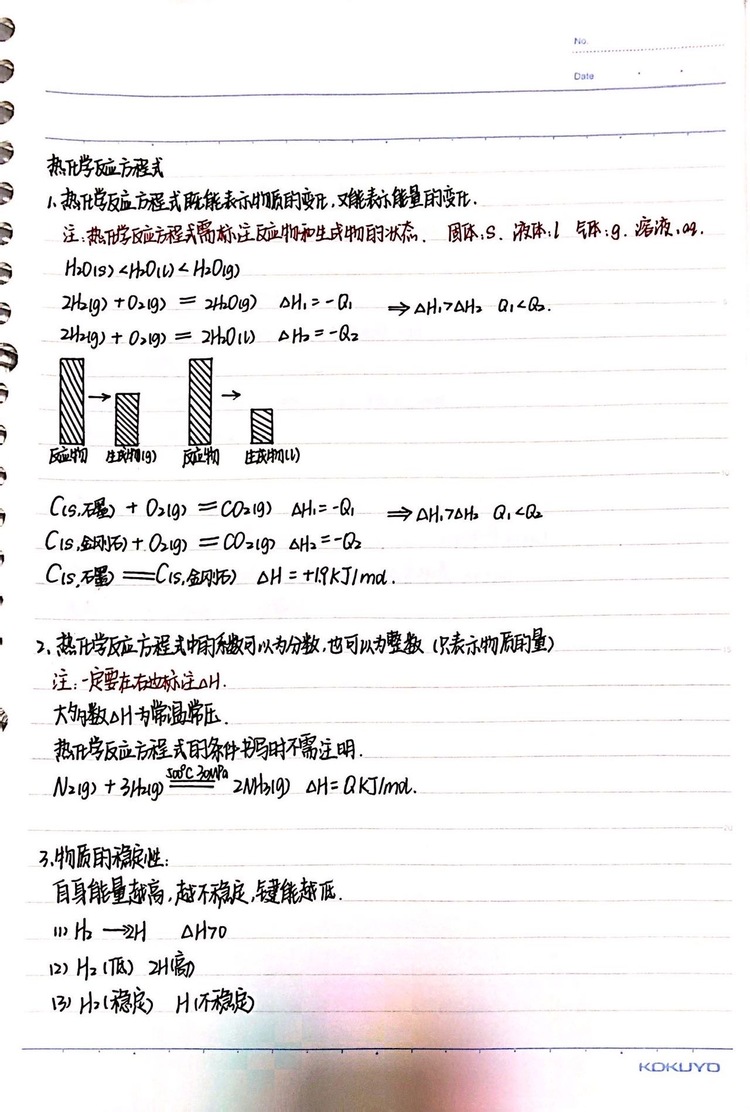 No.
Date
热化学反应方程式
1、热化学反应方程式既能表示物质的变化,又能表示能量的变化.
注:热化学反应方程式需标注反应物和生成物的状态. 固体:s. 液体:l 气体:g. 溶液:aq.
H2O(s)<H2O(l)<H2O(g)
2H2(g)+O2(g) = 2H2O(g) △H1=-Q1 ⇒△H1>△H2 Q1<Q2.
2H2(g)+O2(g) = 2H2O(l) △H2=-Q2
反应物 生成物(g) 反应物 生成物(l)
C(s,石墨) + O2(g) = CO2(g) △H1=-Q1 ⇒△H1>△H2 Q1<Q2
C(s,金刚石)+O2(g) = CO2(g) △H2=-Q2
C(s,石墨) = C(s,金刚石) △H=+1.9KJ/mol.
2、热化学反应方程式中的系数可以为分数,也可以为整数 (只表示物质的量)
注:一定要在右边标注△H.
大多数△H为常温常压.
热化学反应方程式的条件书写时不需注明.
500℃ 30MPa
N2(g)+3H2(g) = 2NH3(g) △H=QKJ/mol.
3、物质的稳定性:
自身能量越高,越不稳定,键能越低.
(1) H2→2H △H>0
(2) H2(低) 2H(高)
(3) H2(稳定) H(不稳定)
KOKUYO